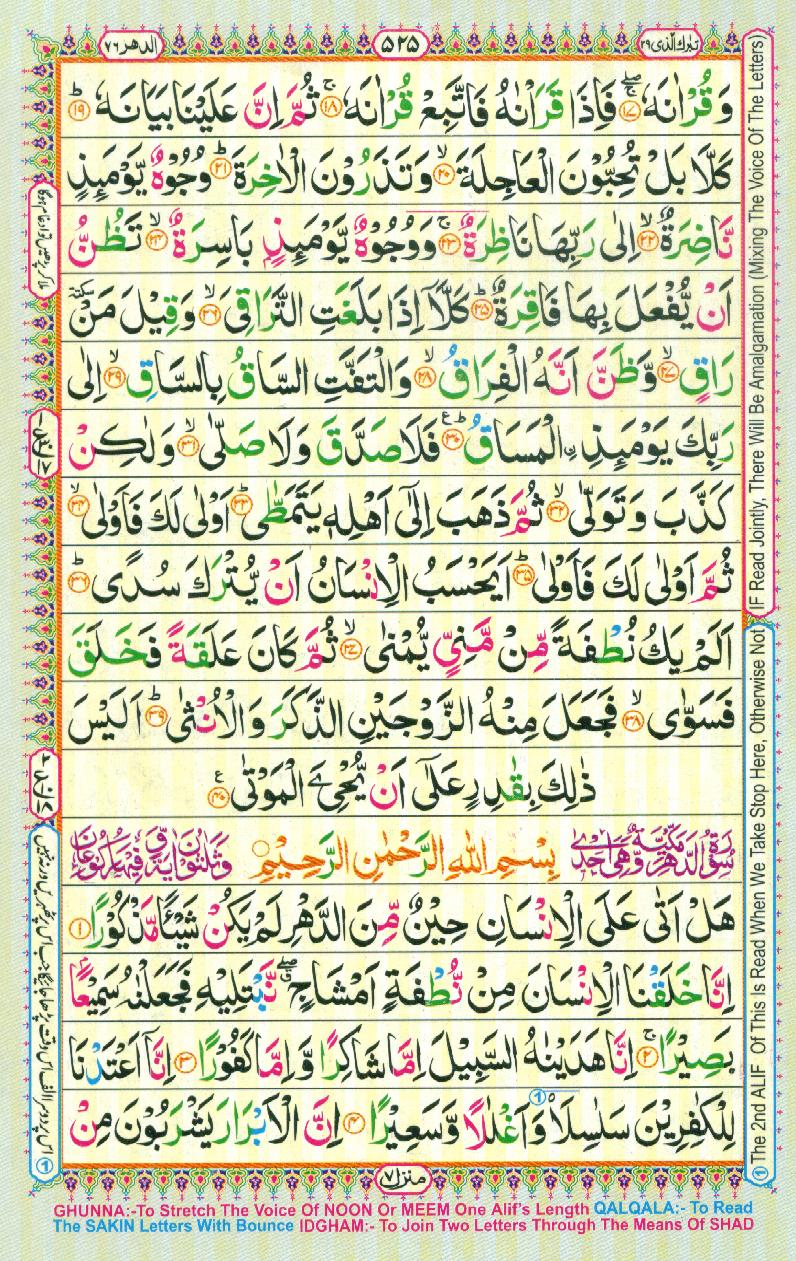 تبٰرك الذی ۲۹
۵۲۵
الدهر ۷۶
وَقُرْاٰنَهٗ ۚۖ ﴿۱۷﴾ فَاِذَا قَرَاْنٰهُ فَاتَّبِعْ قُرْاٰنَهٗ ۚ ﴿۱۸﴾ ثُمَّ اِنَّ عَلَيْنَا بَيَانَهٗ ؕ ﴿۱۹﴾
كَلَّا بَلْ تُحِبُّوْنَ الْعَاجِلَةَ ۙ ﴿۲۰﴾ وَتَذَرُوْنَ الْاٰخِرَةَ ؕ ﴿۲۱﴾ وُجُوْهٌ يَّوْمَئِذٍ
نَّاضِرَةٌ ۙ ﴿۲۲﴾ اِلٰى رَبِّهَا نَاظِرَةٌ ۚ ﴿۲۳﴾ وَوُجُوْهٌ يَّوْمَئِذٍۭ بَاسِرَةٌ ۙ ﴿۲۴﴾ تَظُنُّ
اَنْ يُّفْعَلَ بِهَا فَاقِرَةٌ ؕ ﴿۲۵﴾ كَلَّاۤ اِذَا بَلَغَتِ التَّرَاقِىَ ۙ ﴿۲۶﴾ وَقِيْلَ مَنْ سكتة
رَاقٍ ۙ ﴿۲۷﴾ وَّظَنَّ اَنَّهُ الْفِرَاقُ ۙ ﴿۲۸﴾ وَالْتَفَّتِ السَّاقُ بِالسَّاقِ ۙ ﴿۲۹﴾ اِلٰى
رَبِّكَ يَوْمَئِذِ ۨالْمَسَاقُ ؕ ع ﴿۳۰﴾ فَلَا صَدَّقَ وَلَا صَلّٰى ۙ ﴿۳۱﴾ وَلٰكِنْ
كَذَّبَ وَتَوَلّٰى ۙ ﴿۳۲﴾ ثُمَّ ذَهَبَ اِلٰٓى اَهْلِهٖ يَتَمَطّٰى ؕ ﴿۳۳﴾ اَوْلٰى لَكَ فَاَوْلٰى ۙ ﴿۳۴﴾
ثُمَّ اَوْلٰى لَكَ فَاَوْلٰى ؕ ﴿۳۵﴾ اَيَحْسَبُ الْاِنْسَانُ اَنْ يُّتْرَكَ سُدًى ؕ ﴿۳۶﴾
اَلَمْ يَكُ نُطْفَةً مِّنْ مَّنِىٍّ يُّمْنٰى ۙ ﴿۳۷﴾ ثُمَّ كَانَ عَلَقَةً فَخَلَقَ
فَسَوّٰى ۙ ﴿۳۸﴾ فَجَعَلَ مِنْهُ الزَّوْجَيْنِ الذَّكَرَ وَالْاُنْثٰى ؕ ﴿۳۹﴾ اَلَيْسَ
ذٰلِكَ بِقٰدِرٍ عَلٰٓى اَنْ يُّحْـِۧىَ الْمَوْتٰى ع ﴿۴۰﴾
سُوْرَةُ الدَّهْرِ مَكِّيَّةٌ وَّهِىَ اِحْدٰى بِسْمِ اللهِ الرَّحْمٰنِ الرَّحِيْمِ وَثَلٰثُوْنَ اٰيَةً وَّفِيْهَا رُكُوْعَانِ
هَلْ اَتٰى عَلَى الْاِنْسَانِ حِيْنٌ مِّنَ الدَّهْرِ لَمْ يَكُنْ شَيْـًٔا مَّذْكُوْرًا ﴿۱﴾
اِنَّا خَلَقْنَا الْاِنْسَانَ مِنْ نُّطْفَةٍ اَمْشَاجٍ ۖۗ نَّبْتَلِيْهِ فَجَعَلْنٰهُ سَمِيْعًۢا
بَصِيْرًا ۚ ﴿۲﴾ اِنَّا هَدَيْنٰهُ السَّبِيْلَ اِمَّا شَاكِرًا وَّاِمَّا كَفُوْرًا ﴿۳﴾ اِنَّاۤ اَعْتَدْنَا
لِلْكٰفِرِيْنَ سَلٰسِلَا۟ ① وَاَغْلٰلًا وَّسَعِيْرًا ﴿۴﴾ اِنَّ الْاَبْرَارَ يَشْرَبُوْنَ مِنْ
منزل ۷
IF Read Jointly, There Will Be Amalgamation (Mixing The Voice Of The Letters)
① The 2nd ALIF Of This Is Read When We Take Stop Here, Otherwise Not
GHUNNA:-To Stretch The Voice Of NOON Or MEEM One Alif's Length QALQALA:- To Read
The SAKIN Letters With Bounce IDGHAM:- To Join Two Letters Through The Means Of SHAD